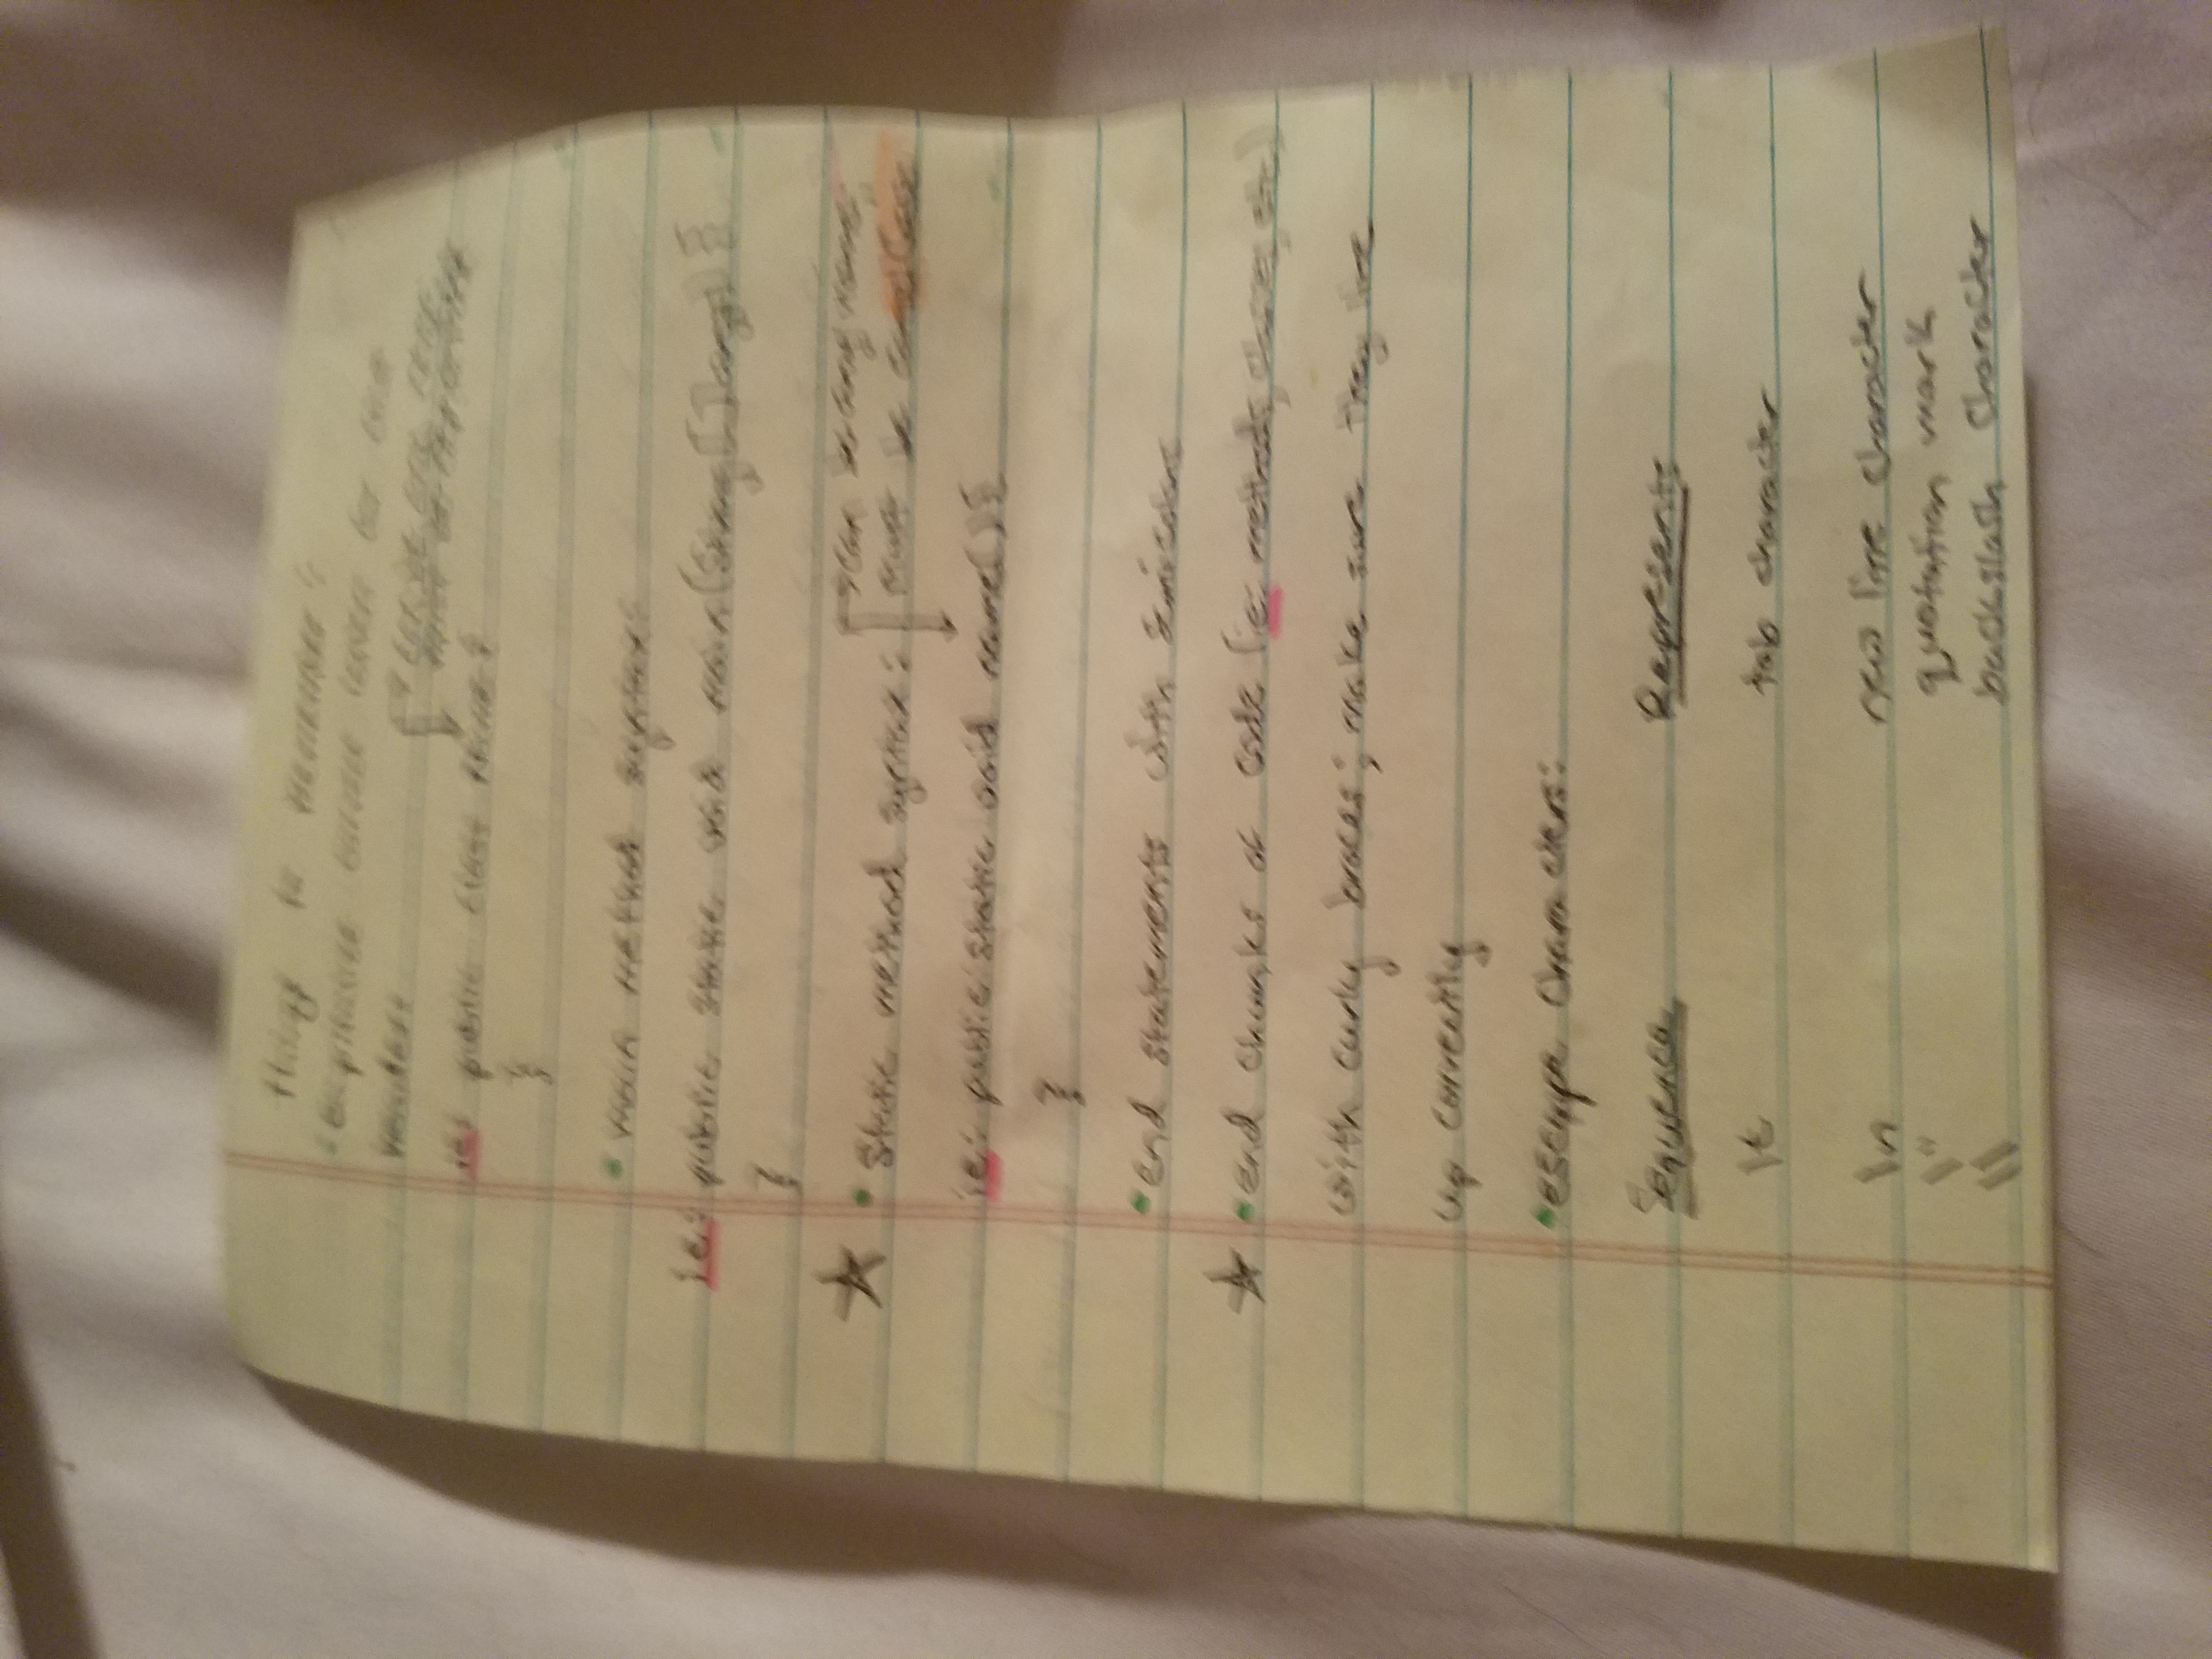 Things to remember:
• capitalize
headers
can be any name,
must be capitalized
ie: public class Name {
}
• main method syntax:
ie: public static void main(String[] args) {
}
can be any name,
• static method syntax: must be camelCase
ie: public static void name() {
}
• end statements with semicolons
• end chunks of code (ie: methods, classes, etc.)
with curly braces; make sure they line
up correctly
• escape characters:
Sequence Represents
\t tab character
\n new line character
\" quotation mark
\\ backslash character